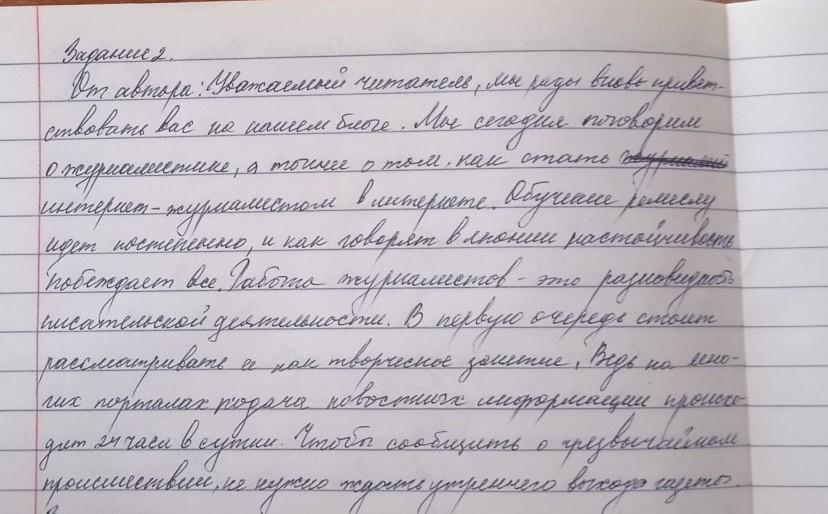 Задание 2.
От автора: Уважаемый читатель, мы рады вновь привет-
ствовать вас на нашем блоге. Мы сегодня поговорим
о журналистике, а точнее о том, как стать
интернет-журналистом в интернете. Обучение ремеслу
идет постепенно, и как говорят в Японии настойчивость
побеждает все. Работа журналистов - это разновидность
писательской деятельности. В первую очередь стоит
рассматривать ее как творческое занятие. Ведь на мно-
гих порталах подача новостных информации происхо-
дит 24 часа в сутки. Чтобы сообщить о чрезвычайном
происшествии, не нужно ждать утреннего выхода газеты.